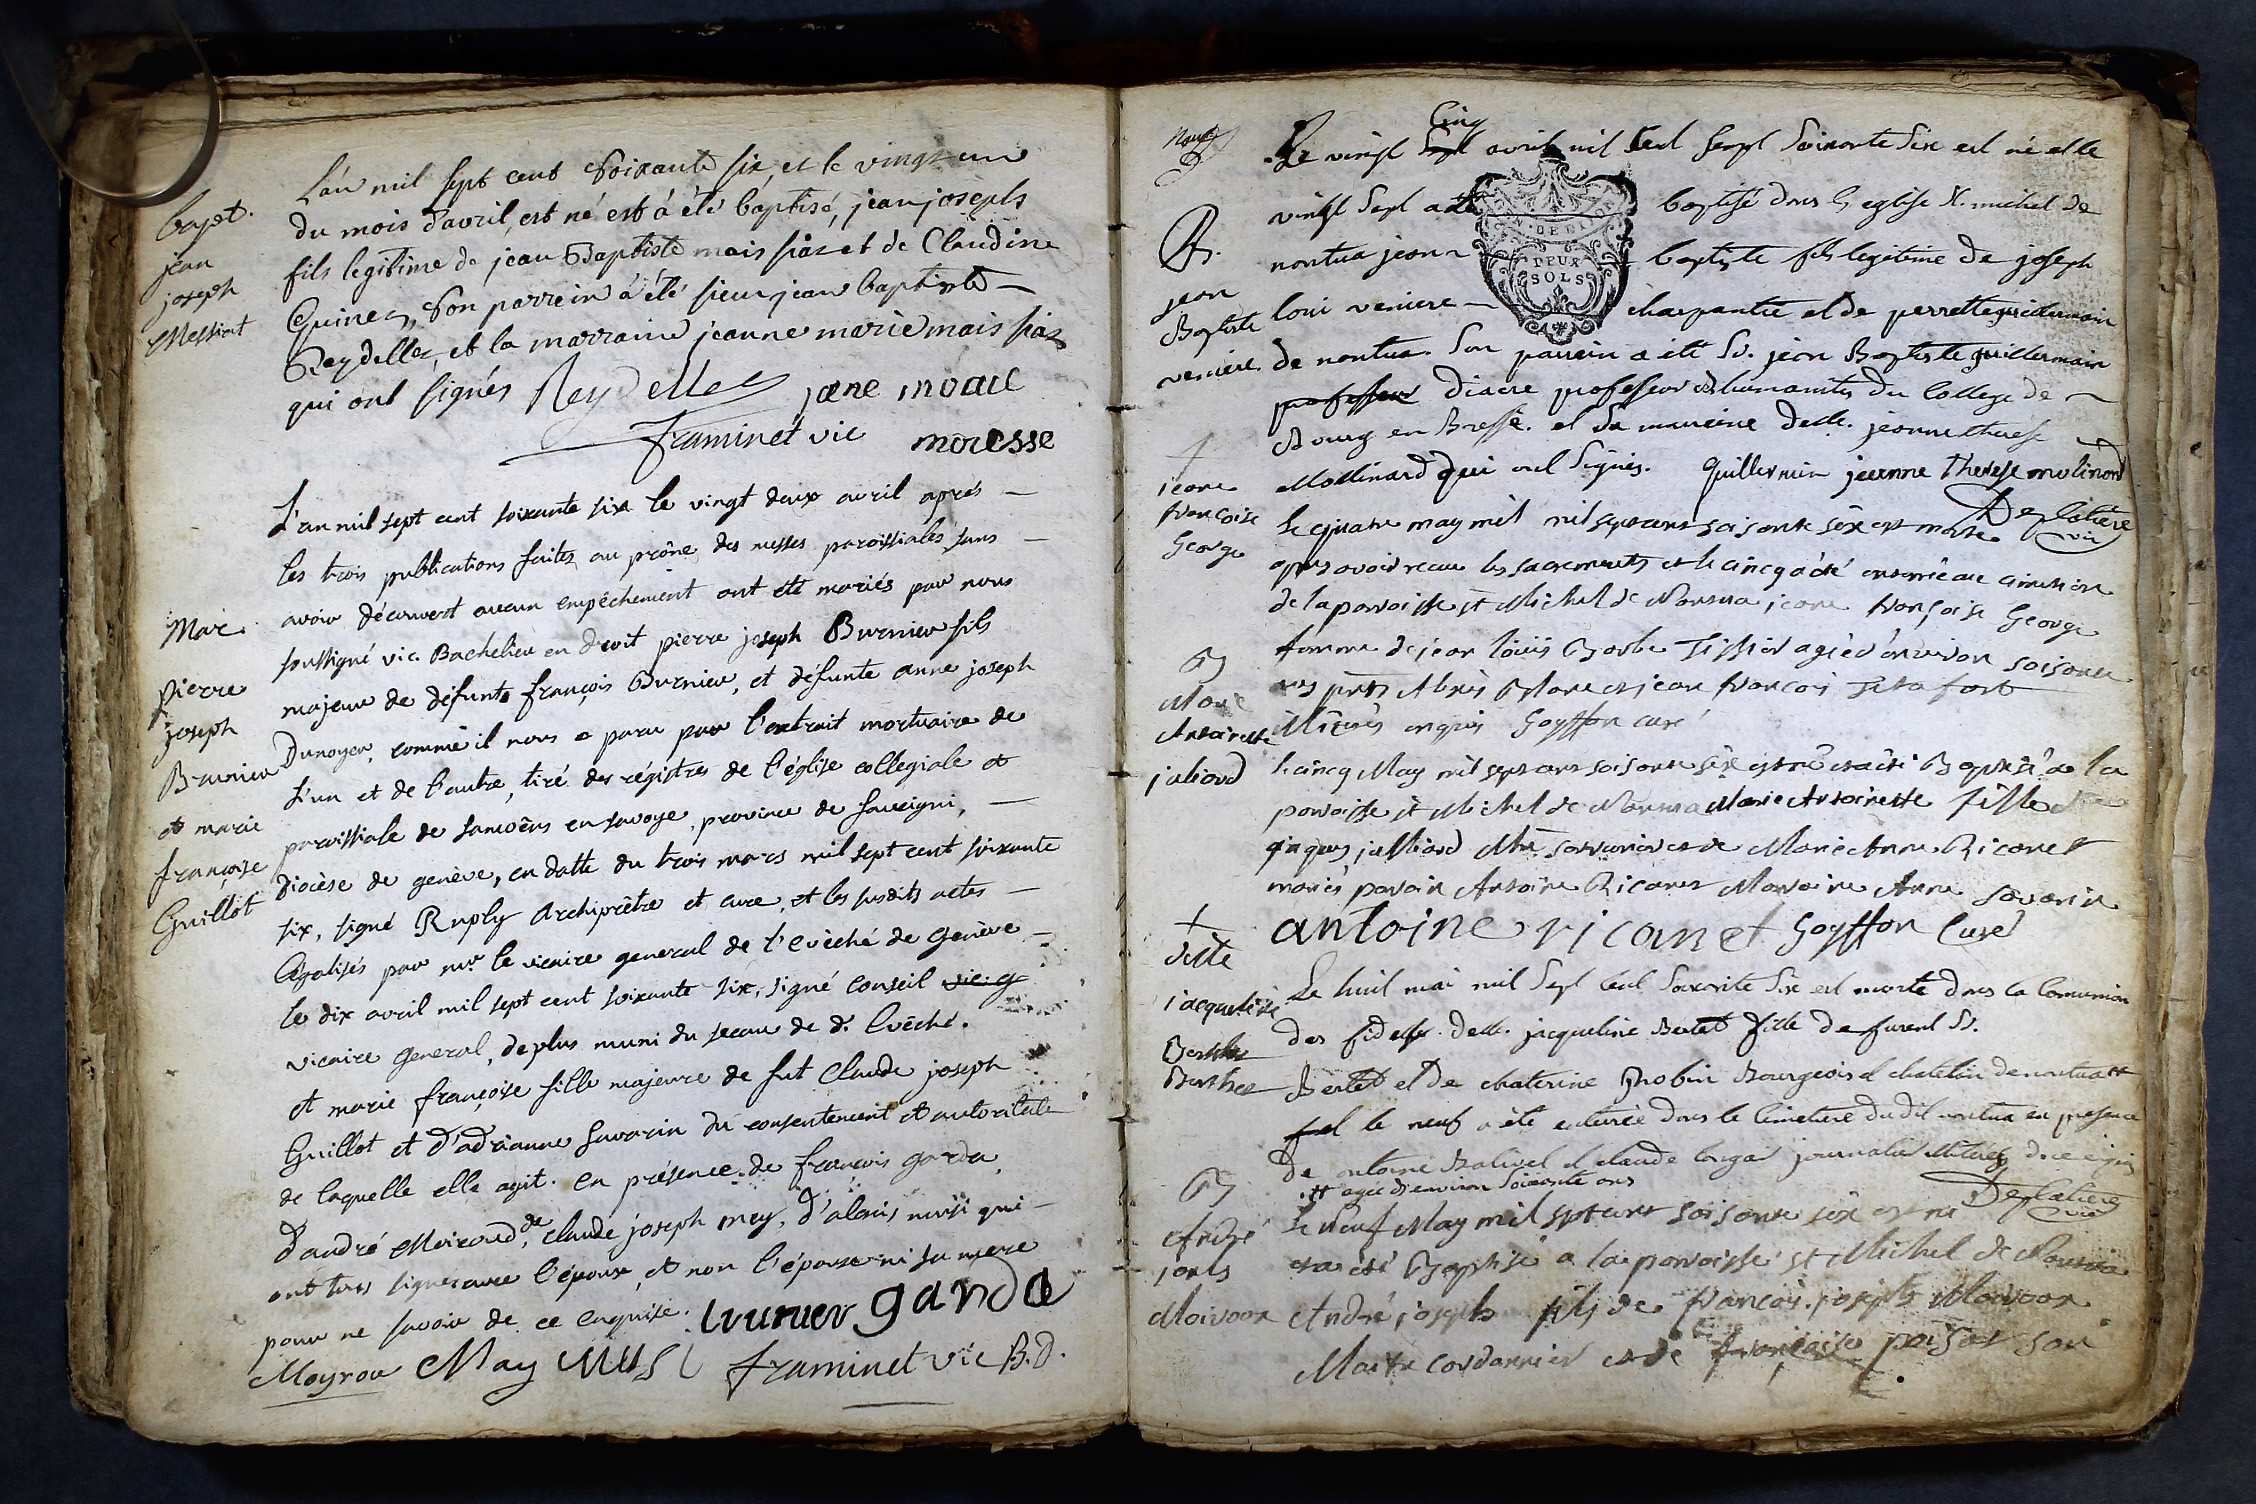 bapt.
jean
joseph
Messiat
L'an mil sept cent soixante six, et le vingt un
du mois d'avril, est né est à été baptisé, jean josephs
fils legitime de jean Baptiste mais siaz et de Claudine
Guinez, Son parrein à été sieur jean baptiste —
Reydellez, et la marraine jeanne marie mais siaz
qui ont signés Reydellez jane marie
framinet vic moiesse
Mar.
pierre
joseph
Burnier
et marie
françoise
Guillot
L'an mil sept cent soixante six le vingt deux avril aprés —
les trois publications faites au prône des messes paroissiales sans —
avoir découvert aucun empêchement ont été mariés par nous
soussigné vic. Bachelier en droit pierre joseph Burnier fils
majeur de défunts françois Burnier, et défunte anne joseph
Dunoyer, comme il nous a paru par l'extrait mortuaire de
l'un et de l'autre, tiré des régistres de l'église collegiale et
paroissiale de samoëns en savoye, province de faucigni, —
diocèse de genève, en datte du trois mars mil sept cent soixante
six, signé Ruply Archiprêtre et curé, et les susdits actes —
légalisés par mr. le vicaire general de l'évêché de genève —
le dix avril mil sept cent soixante six, signé conseil vic. g
vicaire general, de plus muni du sceau de d. Evêché.
et marie françoise fille majeure de fut Claude joseph
Guillot et d'adrianne savarin du consentement et autorité de
de laquelle elle agit. en présence de françois garda,
d'andré Moiroud, de claude joseph mey, d'alexis musi qui —
ont tous signés avec l'époux, et non l'épouse ni sa mere
pour ne savoir de ce enquise. burnier garda
Moyrou May MUSI framinet vic B. D.
Nant
B.
jean
Baptiste
veniere
Le vingt Sept Cinq avril mil Sept Cent Soixante Six est né et le
vingt Sept a été baptisé dans l'eglise St. michel de
nantua jean — baptiste fils legitime de joseph
loui veniere — charpantié et de perrette guillermain
de nantua. Son parrein a été Sr. jean Baptiste guillermain
professeur diacre professeur d'humanités du College de —
Bourg en Bresse. et Sa mareine delle. jeanne therese
Mollinard qui ont Signés. Guillermin jeanne Therese molinard
Deglatiere
vic
DEUX
SOLS
†
jeane
françoise
George
Le quatre may mil mil sept cent soisante sëx est morte
apres avoir reçue les sacrements et le cincq a été enterrée au cimetiere
de la paroisse st Michel de Nantua jeane françoise George
femme de jean louis Barbe Tissier agée d'environ soisante
ans pnts Alexis Blanc et jean françois
illiterés enquis Goyffon curé
B
Marie
Antoinette
juliard
le cincq May mil sept cent soisante sëx est née et a été Baptisé a la
paroisse st Michel de Nantua Marie Antoinette fille de
jacques julliard Mtre et de Marie Anne Ricanet
mariés parain Antoine Ricanet Maraine Anne Savarin
antoine ricanet Goyffon Curé
†
delle
jacqueline
Berthet
Berthet
Le huit mai mil Sept Cent Soixante Six est morte dans la Comunion
des fidelles delle. jacqueline Bertet fille de furent Sr.
Bertet et de chaterine Bourgeois et chatelin de nantua #
et le neuf a été enterrée dans le Cimetiere dudit nantua en presence
de antoine Balivet et claude journalier illiterés de ce enquis
# agée d'environ Soixante ans
Deglatiere
vic
B
André
josephs
Moiroux
le Neuf May mil sept cent soisante sëx est né
et a été Baptisé a la paroisse st Michel de Nantua
André josephs fils de françois josephs Moiroux
Maitre Cordonnier et de françoise son